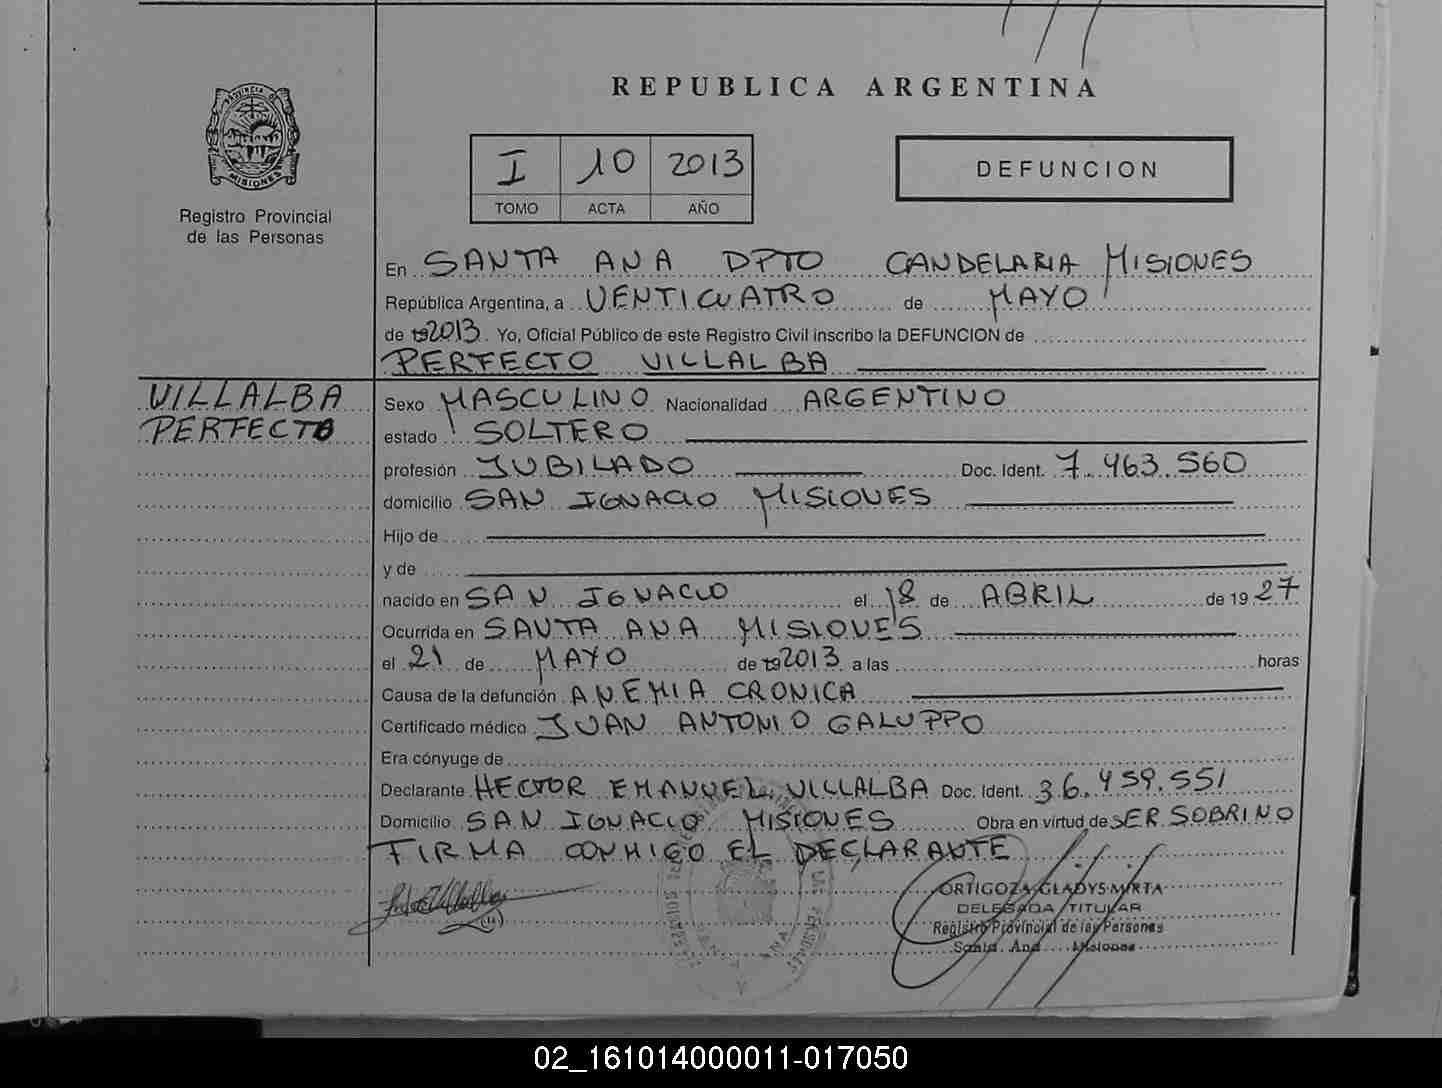 REPUBLICA ARGENTINA
PROVINCIA DE
MISIONES
Registro Provincial
de las Personas
I 10 2013
TOMO ACTA AÑO
DEFUNCION
En SANTA ANA DPTO CANDELARIA MISIONES
República Argentina, a VENTICUATRO de MAYO
de 192013. Yo, Oficial Público de este Registro Civil inscribo la DEFUNCION de
PERFECTO VILLALBA
VILLALBA
PERFECTO
Sexo MASCULINO Nacionalidad ARGENTINO
estado SOLTERO
profesión JUBILADO Doc. Ident. 7.463.560
domicilio SAN IGNACIO MISIONES
Hijo de
y de
nacido en SAN IGNACIO el 18 de ABRIL de 19 27
Ocurrida en SANTA ANA MISIONES
el 21 de MAYO de 192013 a las horas
Causa de la defunción ANEMIA CRONICA
Certificado médico JUAN ANTONIO GALUPPO
Era cónyuge de
Declarante HECTOR EMANUEL VILLALBA Doc. Ident. 36.459.551
Domicilio SAN IGNACIO MISIONES Obra en virtud de SER SOBRINO
FIRMA CONMIGO EL DECLARANTE
ORTIGOZA GLADYS MIRTA
DELEGADA TITULAR
Registro Provincial de las Personas
Santa Ana Misiones
02_161014000011-017050